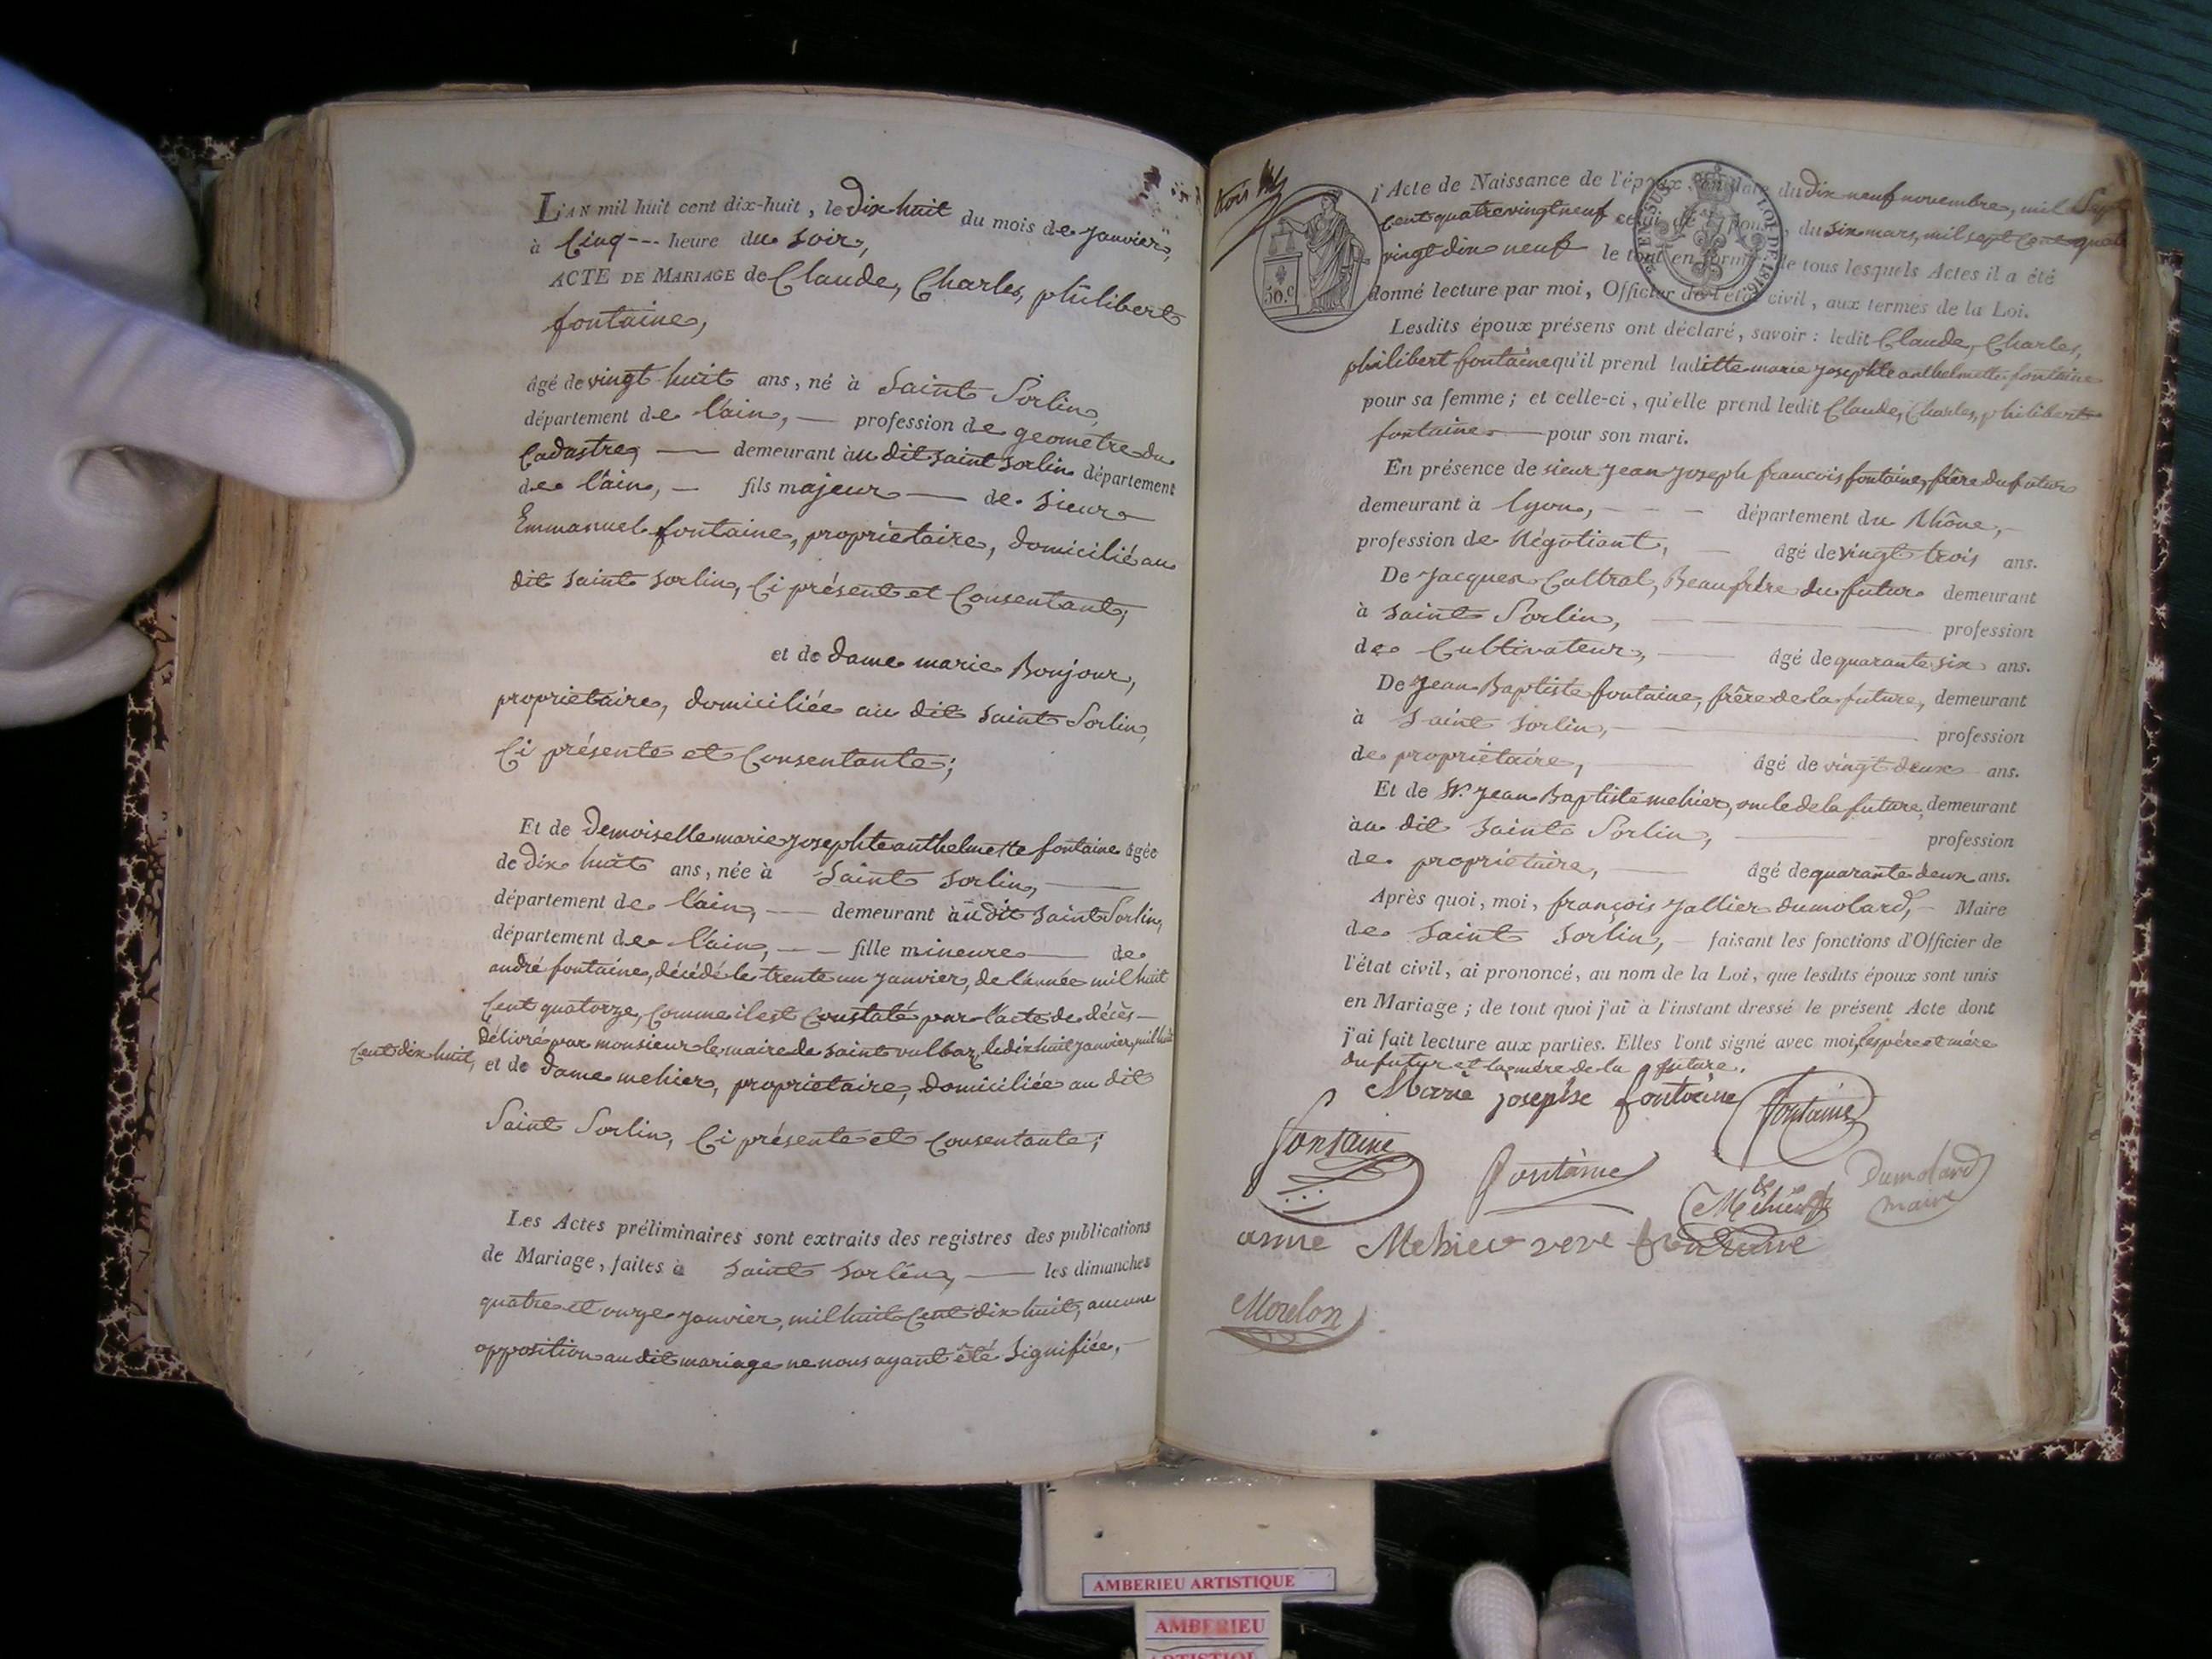 L'AN mil huit cent dix-huit, le dix huit du mois de janvier,
à Cinq --- heure du soir,
ACTE DE MARIAGE de Claude, Charles, philibert
fontaine,
âgé de vingt huit ans, né à Saint Sorlin,
département de l'ain, — profession de geométre du
Cadastre, — demeurant au dit saint sorlin département
de l'ain, — fils majeur — de sieur
Emmanuel fontaine, propriétaire, domicilié au
dit saint sorlin, Ci présent et Consentant;
et de dame marie Bonjour,
propriétaire, domiciliée au dit saint Sorlin,
Ci présente et Consentante;
Et de demoiselle marie josephte anthelmette fontaine âgée
de dix huit ans, née à Saint Sorlin, —
département de l'ain, — demeurant au dit saint Sorlin,
département de l'ain, — fille mineure — de
andré fontaine, décédé le trente un janvier, de l'année mil huit
Cent quatorze, Comme il est Constaté par l'acte de décès —
délivré par monsieur le maire de saint vulbaz, le dix huit janvier, mil huit
Cent dix huit, et de dame mehier, propriétaire, domiciliée au dit
Saint Sorlin, Ci présente et Consentante;
Les Actes préliminaires sont extraits des registres des publications
de Mariage, faites à saint sorlin, — les dimanches
quatre et onze janvier, mil huit Cent dix huit, aucune
opposition au dit mariage ne nous ayant été signifiée, —
trois
50.c
EN SUS LOI DE 1816
l'Acte de Naissance de l'époux, en date du dix neuf novembre, mil Sept
Cent quatre vingt neuf celui de l'épouse, du six mars, mil sept Cent quatre
vingt dix neuf le tout en forme; de tous lesquels Actes il a été
donné lecture par moi, Officier de l'état civil, aux termes de la Loi.
Lesdits époux présens ont déclaré, savoir : ledit Claude, Charles,
philibert fontaine qu'il prend laditte marie josephte anthelmette fontaine
pour sa femme ; et celle-ci, qu'elle prend ledit Claude, Charles, philibert
fontaine — pour son mari.
En présence de sieur jean joseph francois fontaine, frère du futur
demeurant à lyon, — — — département du Rhône, —
profession de Négotiant, — âgé de vingt trois ans.
De jacques Cattral, Beaufrère du futur demeurant
à saint Sorlin, — profession
de Cultivateur, — âgé de quarante six ans.
De jean Baptiste fontaine, frère de la future, demeurant
à saint sorlin, — profession
de propriétaire, — âgé de vingt deux ans.
Et de Sr. jean Baptiste mehier, oncle de la future, demeurant
au dit saint Sorlin, — profession
de propriétaire, — âgé de quarante deux ans.
Après quoi, moi, françois jallier dumolard, — Maire
de saint Sorlin, — faisant les fonctions d'Officier de
l'état civil, ai prononcé, au nom de la Loi, que lesdits époux sont unis
en Mariage ; de tout quoi j'ai à l'instant dressé le présent Acte dont
j'ai fait lecture aux parties. Elles l'ont signé avec moi, les père et mère
du futur et la mère de la future.
Marie josephe fontaine fontaine
fontaine fontaine Méhier Dumolard
maire
anne Mehier veve fontaine
Moulon
AMBERIEU ARTISTIQUE
AMBERIEU
ARTISTIQUE